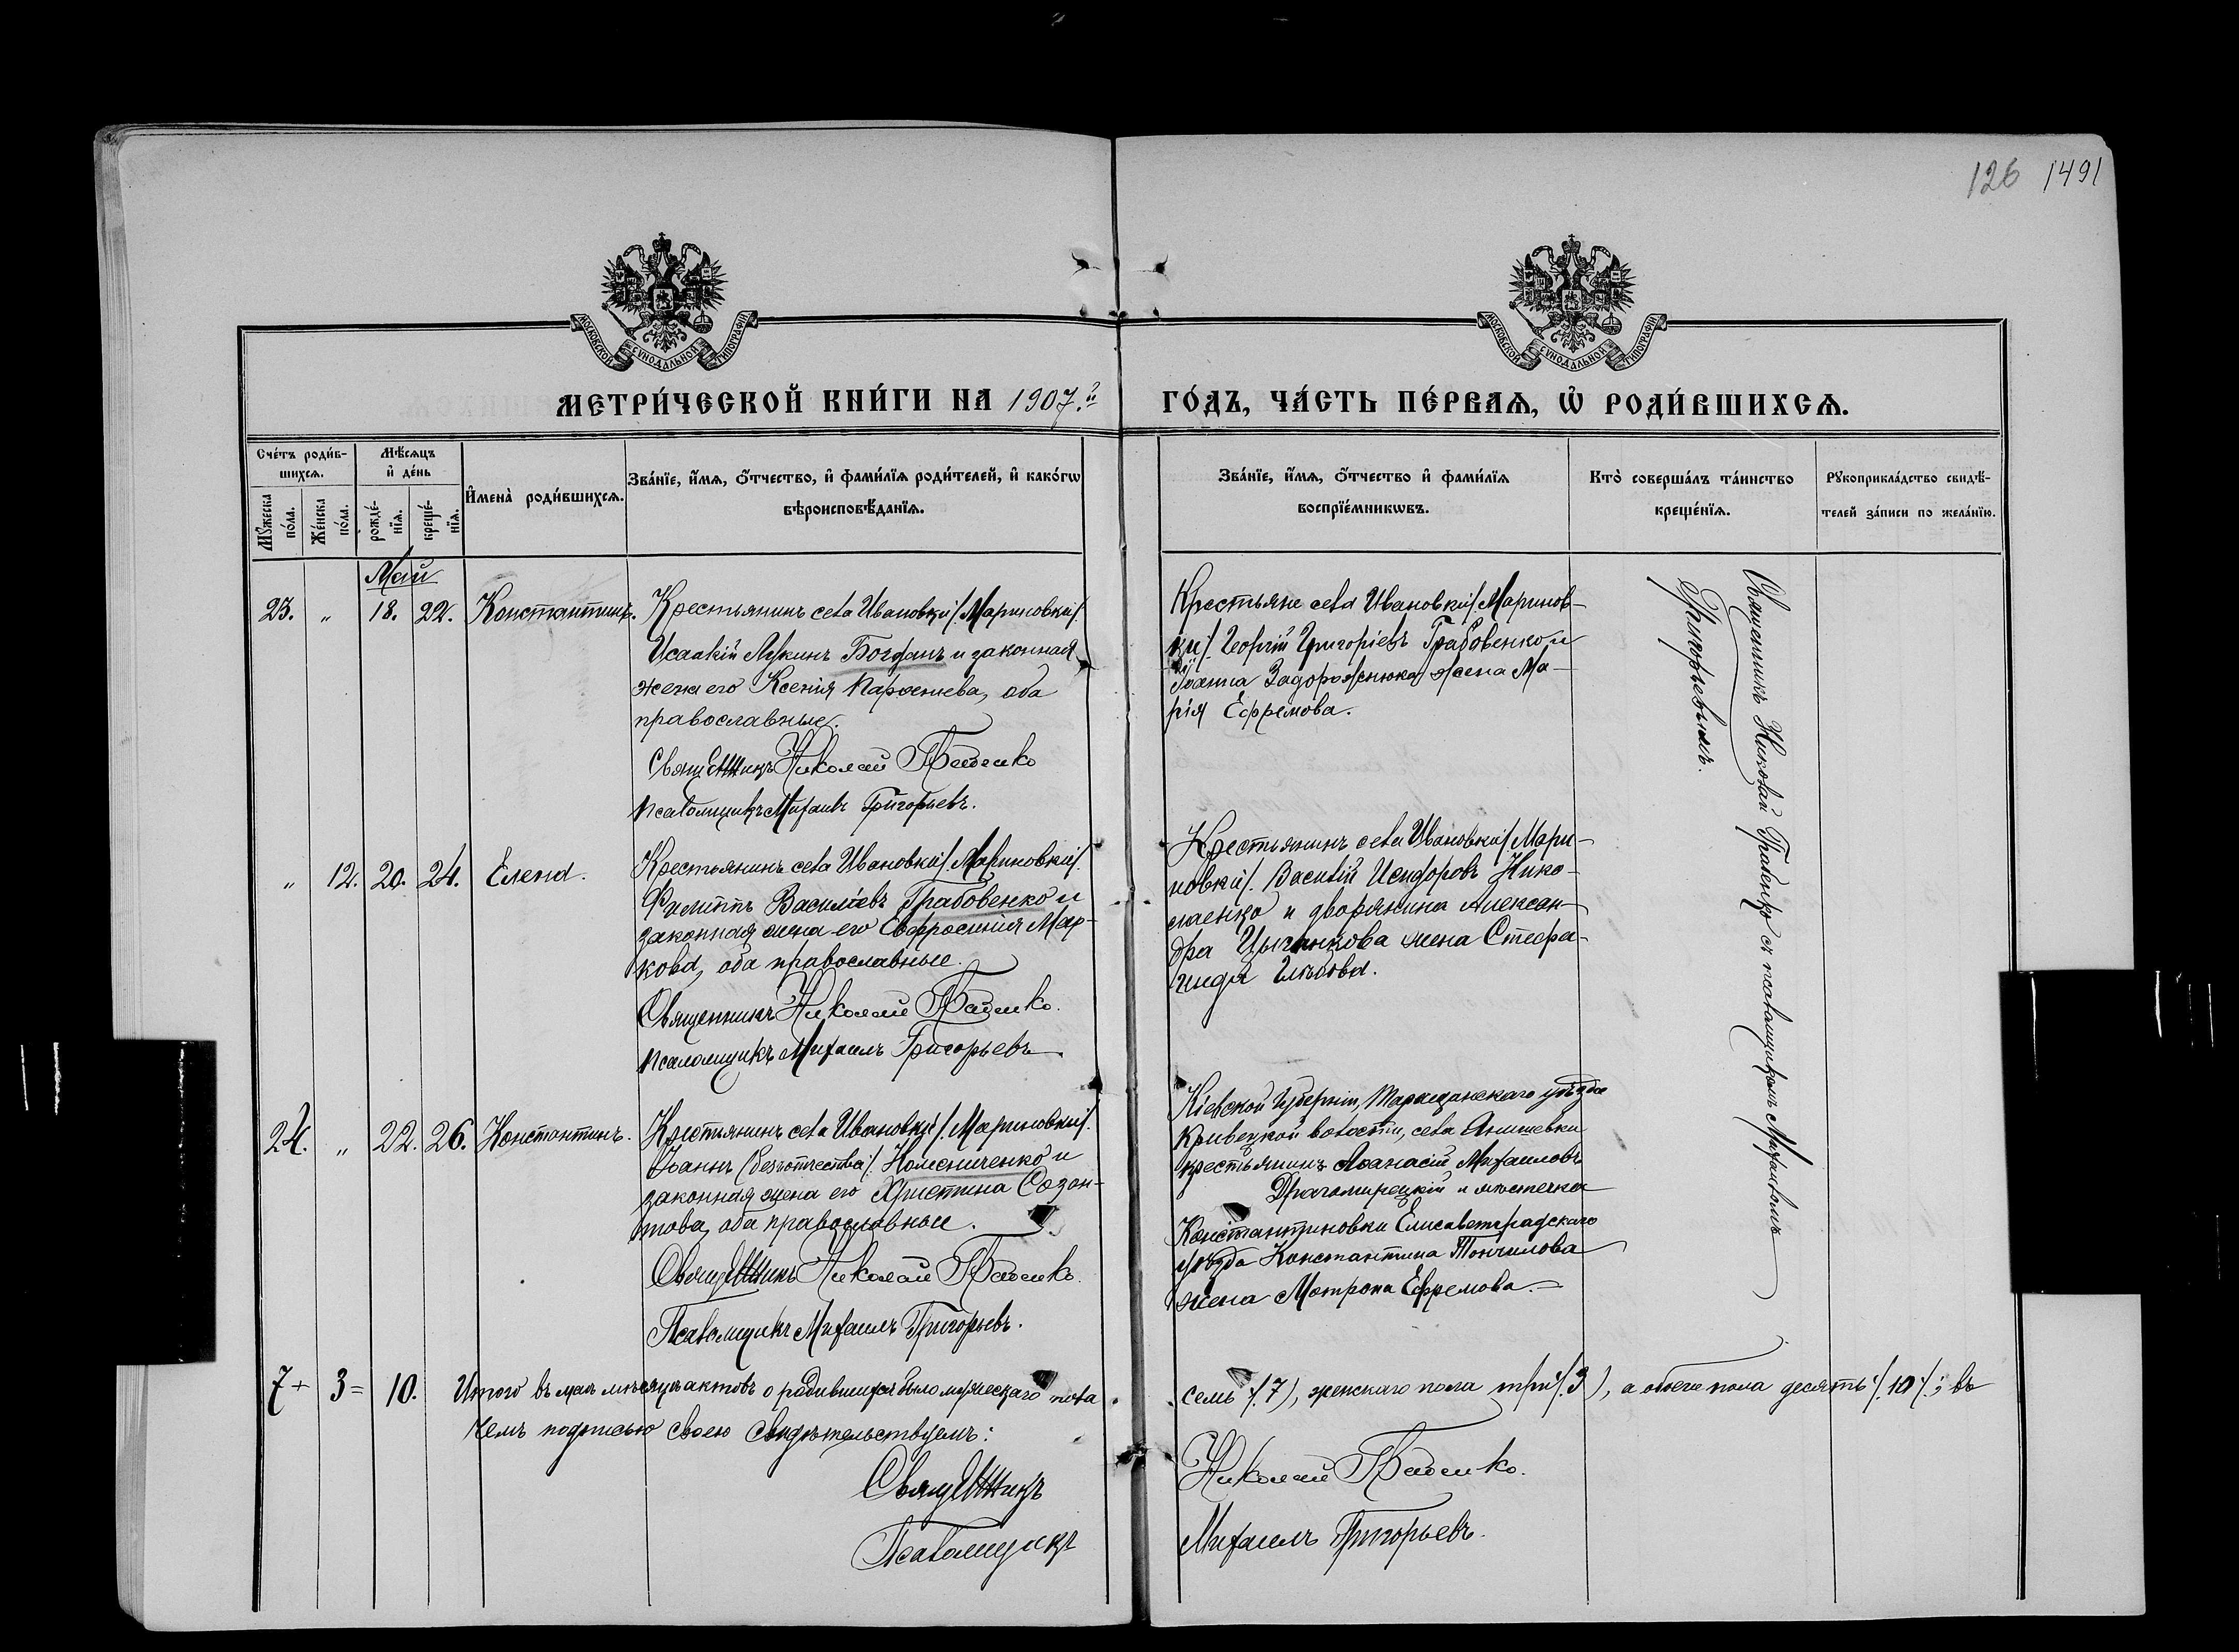 126 1491
МОСКОВСКОЙ СѴНОДАЛЬНОЙ ТИПОГРАФІИ
МОСКОВСКОЙ СѴНОДАЛЬНОЙ ТИПОГРАФІИ
МЕТРИ́ЧЕСКОЙ КНИ́ГИ НА 1907.й
ГО́ДЪ, ЧА́СТЬ ПЕ́РВАѦ, Ѡ҆ РОДИ́ВШИХСѦ.
Сче́тъ роди́в-
шихсѧ.
Мѣ́сѧцъ
и҆ де́нь
Мꙋжеска
по́ла.
Же́нска
по́ла.
рожде́-
нїѧ.
креще́-
нїѧ.
И҆мена̀ роди́вшихсѧ.
Зва́нїе, и҆́мѧ, ѻ҆́тчество, и҆ фами́лїѧ роди́телей, и҆ како́гѡ
вѣроисповѣ́данїѧ.
Зва́нїе, и҆́мѧ, ѻ҆́тчество и҆ фами́лїѧ
воспрїе́мникѡвъ.
Кто̀ соверша́лъ та́инство
креще́нїѧ.
Рꙋкоприкла́дство свидѣ́-
телей за́писи по жела́нїю.
Май
23. „ 18. 22. Константинъ.
Крестьянинъ села Ивановки /. Мариновки /.
Исаакій Лукинъ Богданъ и законная
жена его Ксенія Парѳенева, оба
православные.
Священникъ Николай
Псаломщикъ Михаилъ Григорьевъ.
Крестьяне села Ивановки /. Маринов-
ки /. Георгій Григоріевъ Грабовенко и
Іоанна Задорожнюка жена Ма-
рія Ефремова.
Священникъ Николай с псаломщикомъ Михаиломъ
Григорьевымъ.
„ 12. 20. 24. Елена.
Крестьянинъ села Ивановки /. Мариновки /.
Филиппъ Василіевъ Грабовенко и
законная жена его Евфросинія Мар-
кова, оба православные.
Священникъ Николай
Псаломщикъ Михаилъ Григорьевъ.
Крестьянинъ села Ивановки /. Мари-
новки /. Василій Исидоровъ Нико-
лаенко и дворянина Алексан-
дра Цыганкова жена Стефа-
нида Глѣбова.
24. „ 22. 26. Константинъ.
Крестьянинъ села Ивановки /. Мариновки /.
Іоаннъ (безъ отчества) /. Номениченко и
законная жена его Христина Созон-
това, оба православные.
Священникъ Николай
Псаломщикъ Михаилъ Григорьевъ.
Кіевской губерніи, Таращанскаго уѣзда
Кривецкой волости, села Янишевки
крестьянинъ Аѳанасій Михаиловъ
Драгомирецкій и мѣстечка
Константиновки Елисаветградскаго
уѣзда Константина Тончилова
жена Матрона Ефремова.
7 + 3 = 10. Итого въ маѣ мѣсяцѣ актовъ о родившихся было мужескаго пола
семь /. 7), женскаго пола три /. 3), а обоего пола десять /. 10 /.; въ
чемъ подписью своею свидѣтельствуемъ:
Священникъ Николай
Псаломщикъ Михаилъ Григорьевъ.